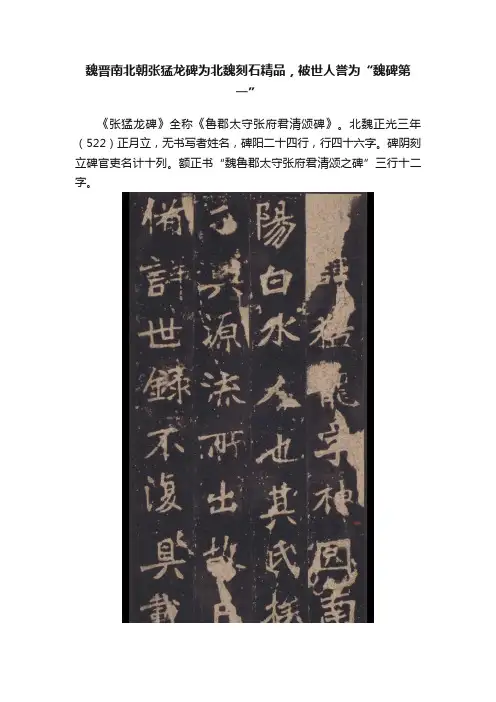 魏晋南北朝张猛龙碑为北魏刻石精品，被世人誉为“魏碑第
一”
《张猛龙碑》全称《鲁郡太守张府君清颂碑》。北魏正光三年
（522）正月立，无书写者姓名，碑阳二十四行，行四十六字。碑阴刻
立碑官吏名计十列。额正书“魏鲁郡太守张府君清颂之碑”三行十二
字。
諱猛龍字神囧南
陽白水人也其氏族
興源流所出故
備詳世録不復具載